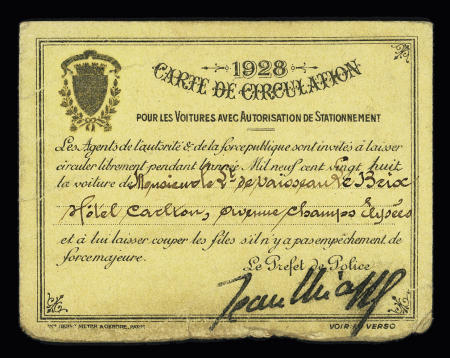 1928
CARTE DE CIRCULATION
POUR LES VOITURES AVEC AUTORISATION DE STATIONNEMENT
Les Agents de l'autorité & de la force publique sont invités à laisser
circuler librement pendant l'année Mil neuf cent Vingt huit
la voiture de Monsieur le Lt de vaisseau Le Brix
Hôtel Carlton, avenue Champs Elysées
et à lui laisser couper les files s'il n'y a pas empêchement de
force majeure.
Le Préfet de Police
Jean Chiappe
VOIR AU VERSO